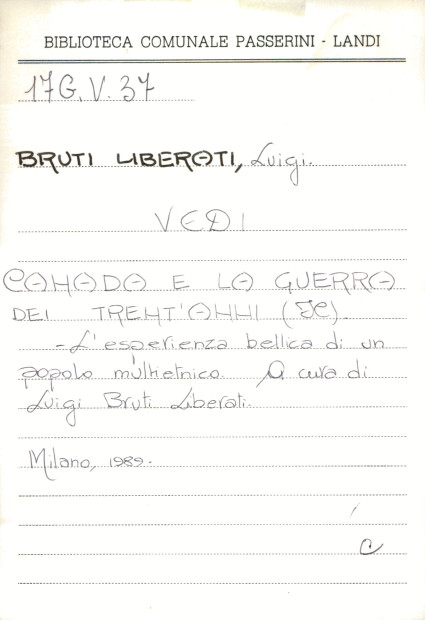 BIBLIOTECA COMUNALE PASSERINI - LANDI
17G.V.37
BRUTI LIBERATI, Luigi.
VEDI
CANADA E LA GUERRA
DEI TRENT'ANNI (IL).
- L'esperienza bellica di un
popolo multietnico. A cura di
Luigi Bruti Liberati.
Milano, 1989.
/
C